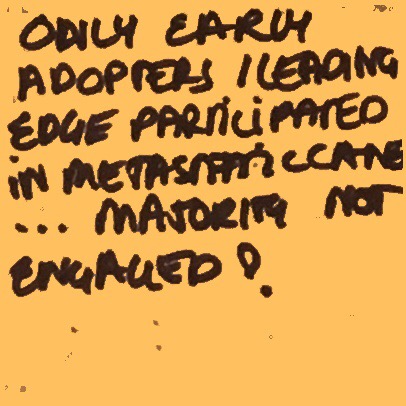 ONLY EARLY
ADOPTERS / LEADING
EDGE PARTICIPATED
IN
... MAJORITY NOT
ENGAGED!